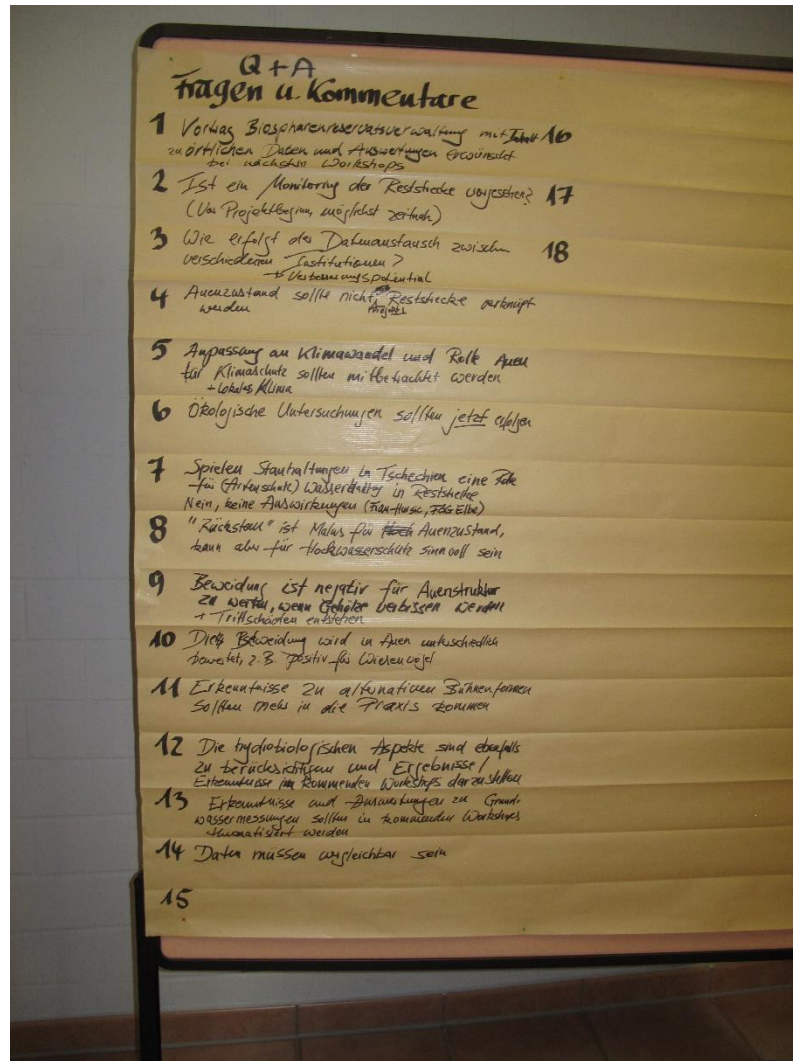 Q + A
Fragen u. Kommentare
1 Vortrag Biosphärenreservatsverwaltung mit Inhalt 16
zu örtlichen Daten und Auswertungen erwünscht
bei nächsten Workshops
2 Ist ein Monitoring der Reststrecke vorgesehen? 17
(Vor Projektbeginn, möglichst zeitnah)
3 Wie erfolgt der Datenaustausch zwischen 18
verschiedenen Institutionen?
→ Verbesserungspotential
4 Auenzustand sollte nicht Reststrecke verknüpft
werden Projekt
5 Anpassung an Klimawandel und Rolle Auen
für Klimaschutz sollten mitbetrachtet werden
+ lokales Klima
6 Ökologische Untersuchungen sollten jetzt erfolgen
7 Spielen Stauhaltungen in Tschechien eine Rolle
für (Artenschutz) Wasserhaltung in Reststrecke
Nein, keine Auswirkungen (Frau Hursie, FGG Elbe)
8 "Rückstau" ist Malus für Auenzustand,
kann aber für Hochwasserschutz sinnvoll sein
9 Beweidung ist negativ für Auenstruktur
zu werten, wenn Gehölze verbissen werden
+ Trittschäden entstehen
10 Beweidung wird in Auen unterschiedlich
bewertet, z.B. positiv für Wiesenvögel
11 Erkenntnisse zu alternativen Buhnenformen
sollten mehr in die Praxis kommen
12 Die hydrobiologischen Aspekte sind ebenfalls
zu berücksichtigen und Ergebnisse /
Erkenntnisse im kommenden Workshops darzustellen
13 Erkenntnisse und Auswertungen zu Grund-
wassermessungen sollten in kommenden Workshops
thematisiert werden
14 Daten müssen vergleichbar sein
15